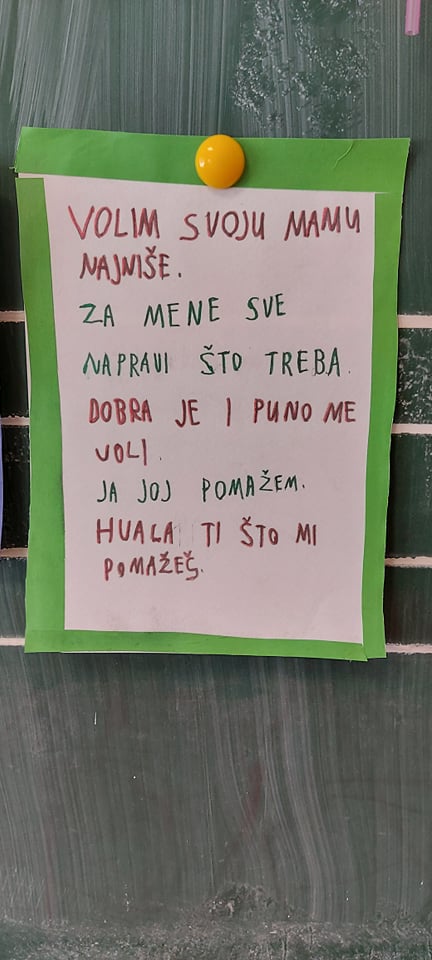 VOLIM SVOJU MAMU
NAJNIŠE.
ZA MENE SVE
NAPRAVI ŠTO TREBA.
DOBRA JE I PUNO ME
VOLI.
JA JOJ POMAŽEM.
HUALA TI ŠTO MI
POMAŽEŠ.